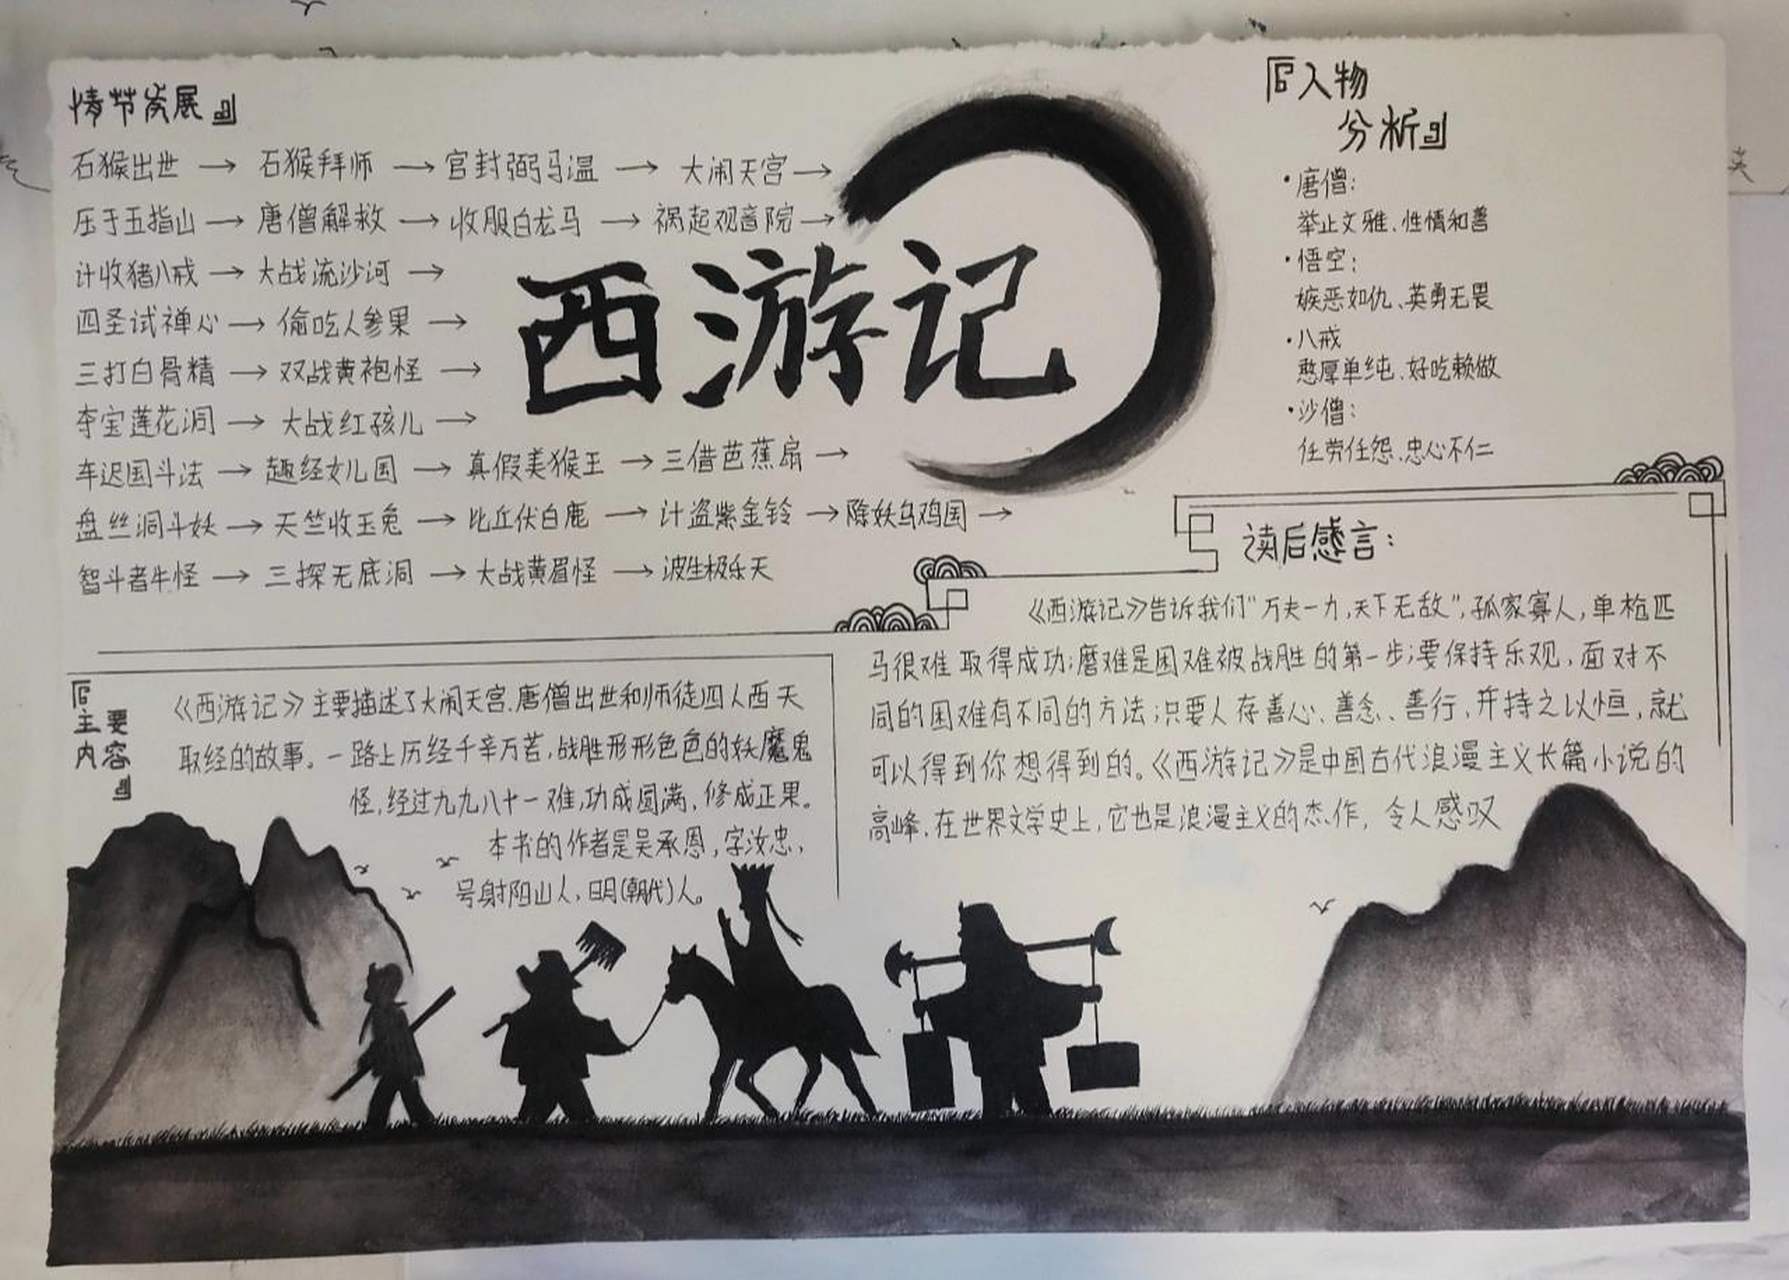 情节发展
石猴出世 → 石猴拜师 → 官封弼马温 → 大闹天宫 →
压于五指山 → 唐僧解救 → 收服白龙马 → 祸起观音院 →
计收猪八戒 → 大战流沙河 →
四圣试禅心 → 偷吃人参果 →
三打白骨精 → 双战黄袍怪 →
夺宝莲花洞 → 大战红孩儿 →
车迟国斗法 → 趣经女儿国 → 真假美猴王 → 三借芭蕉扇 →
盘丝洞斗妖 → 天竺收玉兔 → 比丘伏白鹿 → 计盗紫金铃 → 降妖乌鸡国 →
智斗者牛怪 → 三探无底洞 → 大战黄眉怪 → 波生极乐天
西游记
『人物
分析』
·唐僧:
举止文雅、性情和善
·悟空:
嫉恶如仇、英勇无畏
·八戒
憨厚单纯、好吃赖做
·沙僧:
任劳任怨、忠心不仁
『主要
内容』
《西游记》主要描述了大闹天宫、唐僧出世和师徒四人西天
取经的故事。一路上历经千辛万苦,战胜形形色色的妖魔鬼
怪,经过九九八十一难,功成圆满,修成正果。
本书的作者是吴承恩,字汝忠,
号射阳山人,明(朝代)人。
读后感言:
《西游记》告诉我们"万夫一力,天下无敌",孤家寡人,单枪匹
马很难取得成功;磨难是困难被战胜的第一步;要保持乐观,面对不
同的困难有不同的方法;只要人存善心、善念、善行,并持之以恒,就
可以得到你想得到的。《西游记》是中国古代浪漫主义长篇小说的
高峰,在世界文学史上,它也是浪漫主义的杰作,令人感叹